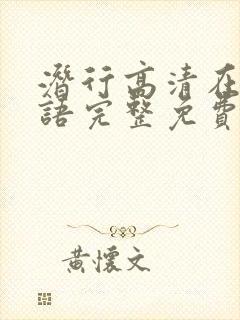 潛行高清在
語完整免費
黃懷文